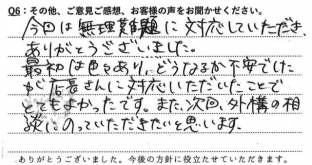 Q6：その他、ご意見ご感想、お客様の声をお聞かせください。
今回は無理難題に対応していただき、
ありがとうございました。
最初は色々あり、どうなるか不安でした
が店長さんに対応しいただいたことで
とてもよかったです。また、次回、外構の相
談にのっていただきたいと思います。
ありがとうございました。今後の方針に役立たせていただきます。